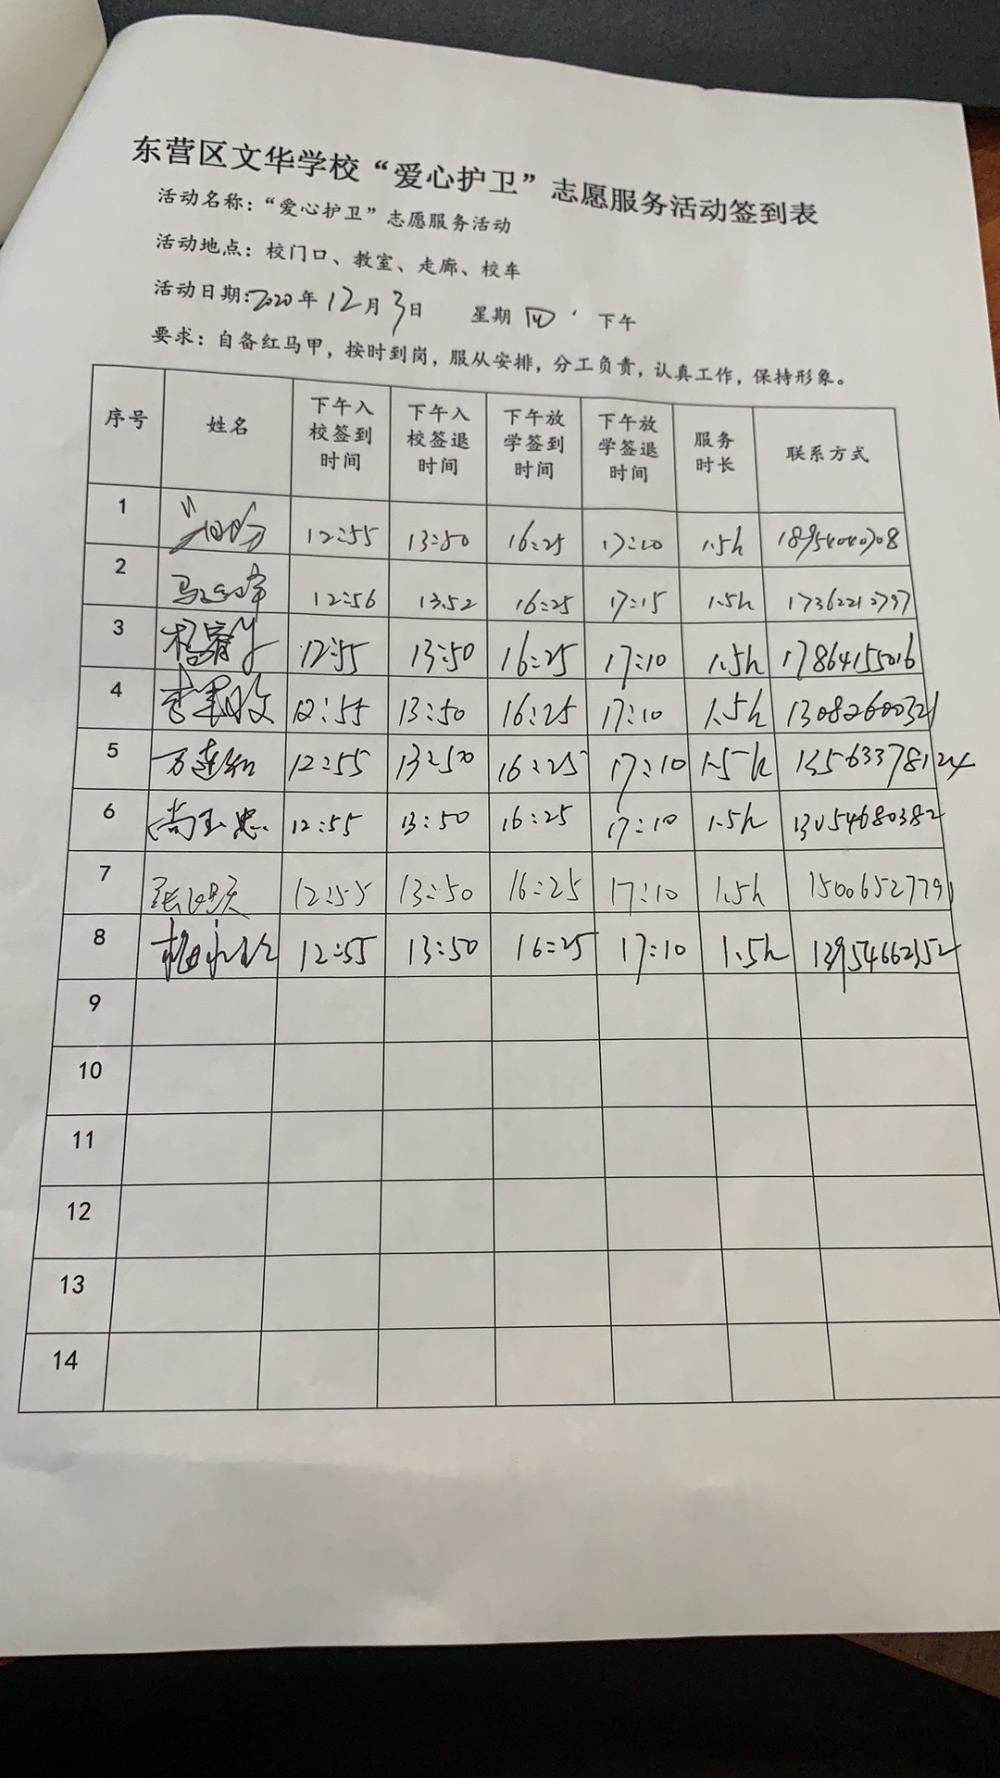 东营区文华学校“爱心护卫”志愿服务活动签到表
活动名称：“爱心护卫”志愿服务活动
活动地点：校门口、教室、走廊、校车
活动日期：2020年12月3日 星期四 下午
要求：自备红马甲，按时到岗，服从安排，分工负责，认真工作，保持形象。
序号 姓名 下午入校签到时间 下午入校签退时间 下午放学签到时间 下午放学签退时间 服务时长 联系方式
1 12:55 13:50 16:25 17:10 1.5h 18954040708
2 12:56 13:52 16:25 17:15 1.5h 17362212797
3 12:55 13:50 16:25 17:10 1.5h 17864155016
4 12:55 13:50 16:25 17:10 1.5h 13082600321
5 万连红 12:55 13:50 16:25 17:10 1.5h 13563378124
6 尚玉忠 12:55 13:50 16:25 17:10 1.5h 13054680382
7 12:55 13:50 16:25 17:10 1.5h 15006527791
8 12:55 13:50 16:25 17:10 1.5h 13954662352
9
10
11
12
13
14